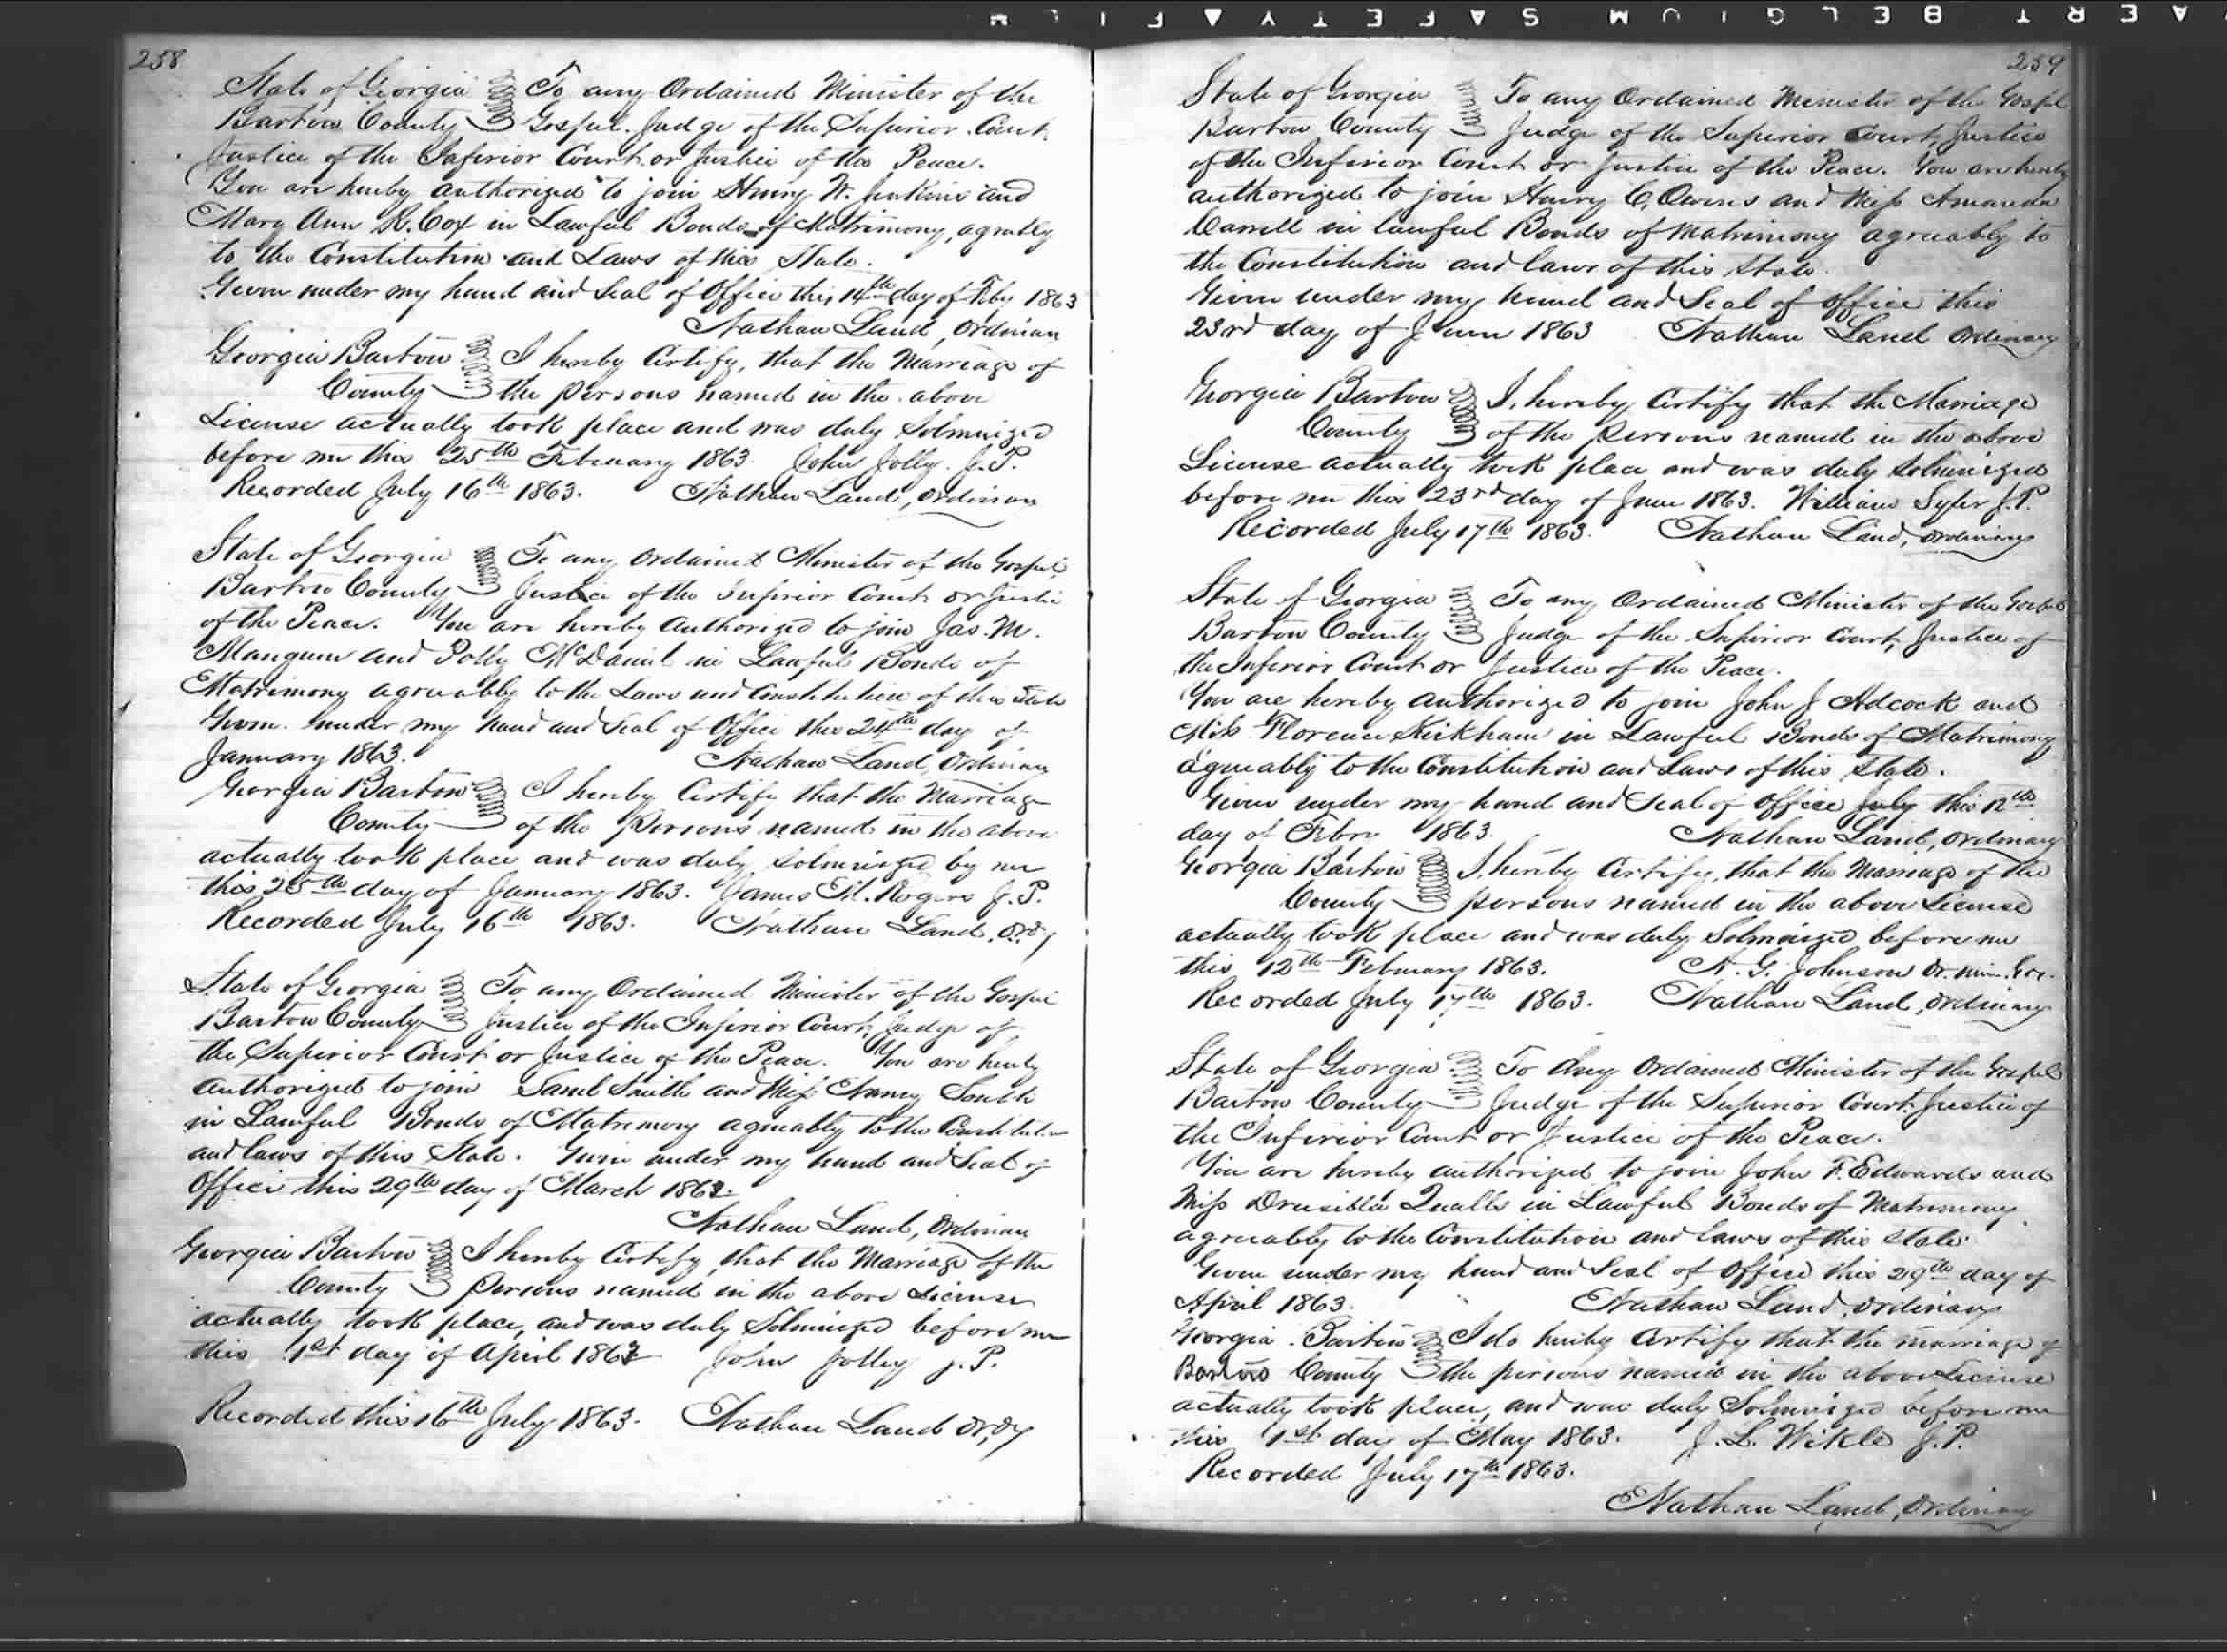 258
State of Georgia To any Ordained Minister of the
Bartow County Gospel. Judge of the Superior Court
Justice of the Inferior Court or Justice of the Peace.
You are hereby authorized to join Henry W. Jenkins and
Mary Ann R. Cox in Lawful Bonds of Matrimony, agreably
to the Constitution and Laws of this State.
Given under my hand and Seal of Office this 14th day of Feby 1863
Nathan Land, Ordinary
Georgia Bartow I hereby Certify, that the Marriage of
County the persons named in the above
License actually took place and was duly Solmnized
before me this 25th February 1863. John Jolly. J.P.
Recorded July 16th 1863. Nathan Land, Ordinary
State of Georgia To any Ordained Minister of the Gospel,
Bartow County Justice of the Inferior Court or Justice
of the Peace. You are hereby authorized to join Jas. M.
Mangum and Polly McDaniel in Lawful Bonds of
Matrimony agreeably to the Laws and Constitution of this State
Given under my hand and Seal of Office this 24th day of
January 1863. Nathan Land, Ordinary
Georgia Bartow I hereby Certify that the Marriage
County of the persons named in the above
actually took place and was duly Solmnized by me
this 25th day of January 1863. James M. Rogers J.P.
Recorded July 16th 1863. Nathan Land, Ordy
State of Georgia To any Ordained Minister of the Gospel
Bartow County Justice of the Inferior Court, Judge of
the Superior Court or Justice of the Peace. You are hereby
authorized to join Saml Smith and Miss Nancy South
in Lawful Bonds of Matrimony agreably to the Constitution
and Laws of this State. Given under my hand and Seal of
Office this 29th day of March 1863.
Nathan Land, Ordinary
Georgia Bartow I hereby Certify, that the Marriage of the
County persons named in the above License
actually took place, and was duly Solmnized before me
this 1st day of April 1863 John Jolley J.P.
Recorded this 16th July 1863. Nathan Land Ordy
259
State of Georgia To any Ordained Minister of the Gospel
Bartow County Judge of the Superior Court, Justice
of the Inferior Court or Justice of the Peace. You are hereby
authorized to join Henry C. Owens and Miss Amanda
Carrell in lawful Bonds of Matrimony agreeably to
the Constitution and laws of this State.
Given under my hand and Seal of office this
23rd day of June 1863 Nathan Land Ordinary
Georgia Bartow I, hereby Certify that the Marriage
County of the persons named in the above
License actually took place and was duly Solmnized
before me this 23rd day of June 1863. William Syler J.P.
Recorded July 17th 1863. Nathan Land, Ordinary
State of Georgia To any Ordained Minister of the Gospel
Bartow County Judge of the Superior Court, Justice of
the Inferior Court or Justice of the Peace.
You are hereby authorized to join John J Adcock and
Miss Florence Kirkham in Lawful Bonds of Matrimony
agreably to the Constitution and Laws of this State.
Given under my hand and Seal of Office July this 12th
day of Febry 1863. Nathan Land, Ordinary
Georgia Bartow I, hereby Certify, that the Marriage of the
County persons named in the above License
actually took place and was duly Solmnized before me
this 12th February 1863. A. G. Johnson Or. Min. Gos.
Recorded July 17th 1863. Nathan Land, Ordinary
State of Georgia To any Ordained Minister of the Gospel
Bartow County Judge of the Superior Court. Justice of
the Inferior Court or Justice of the Peace.
You are hereby authorized to join John F. Edwards and
Miss Drusilla Qualls in Lawful Bonds of Matrimony
agreeably to the Constitution and Laws of this State.
Given under my hand and Seal of Office this 29th day of
April 1863. Nathan Land, Ordinary
Georgia. Bartow I do hereby Certify that the marriage of
Bartow County the persons named in the above License
actually took place, and was duly Solmnized before me
this 1st day of May 1863. J. L. Wikle J.P.
Recorded July 17th 1863.
Nathan Land, Ordinary